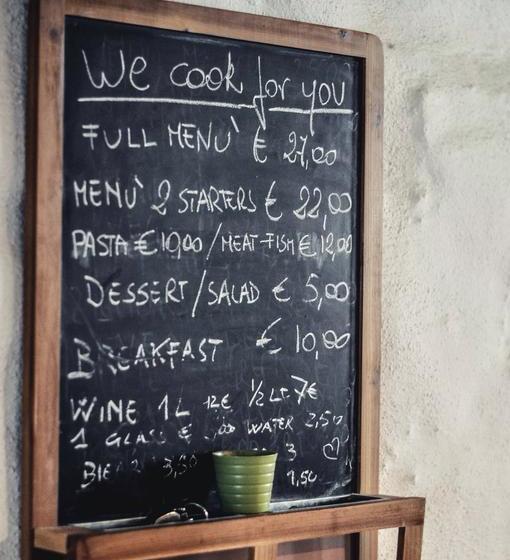 We cook for you
FULL MENU` € 27,00
MENU` 2 STARTERS € 22,00
PASTA € 10,00 / MEAT-FISH € 12,00
DESSERT / SALAD € 5,00
BREAKFAST € 10,00
WINE 1L 12€ ½ Lt 7€
1 GLASS € ,00 WATER 2,50
3,50 3
1,50